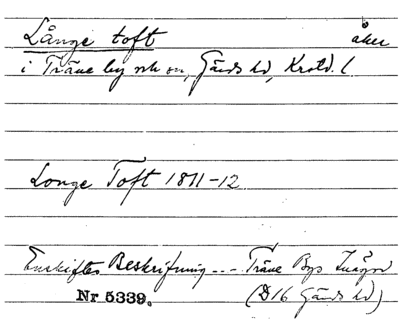 Långe toft åker
i Träne by och sn, Gärds hd, Krstd. l
Longe Toft 1811-12
Enskiftes Beskrifning --- Träne Bys Inägor
Nr 5339. (D16 Gärds hd)